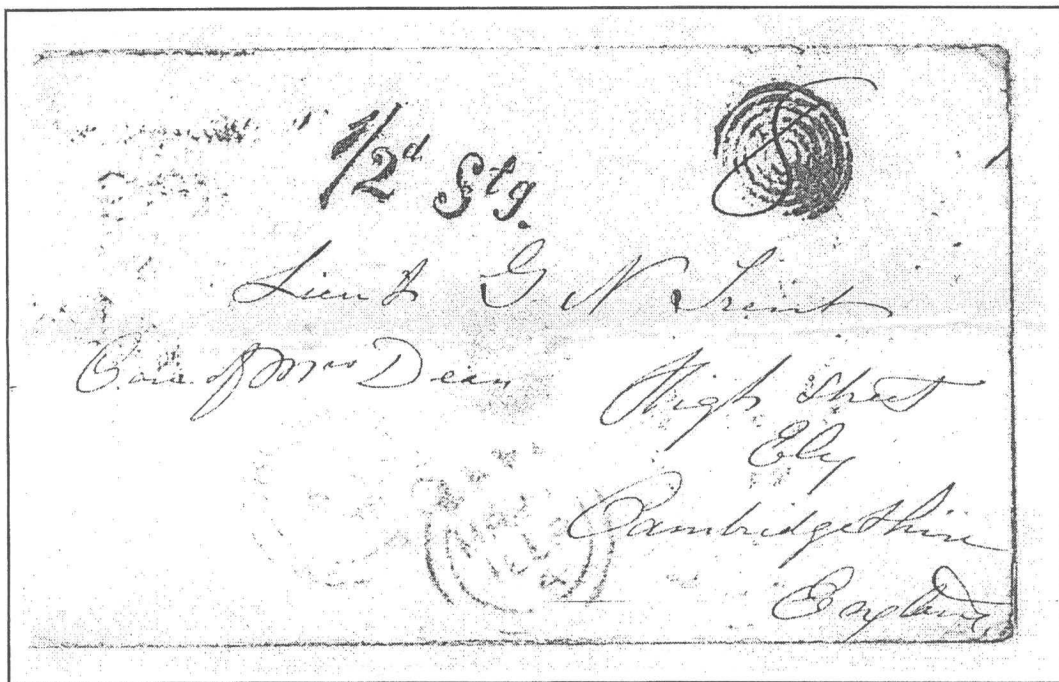 1/2d Stg.
Lieut G N Trent
Care of Mrs Dean
High Street
Ely
Cambridgeshire
England